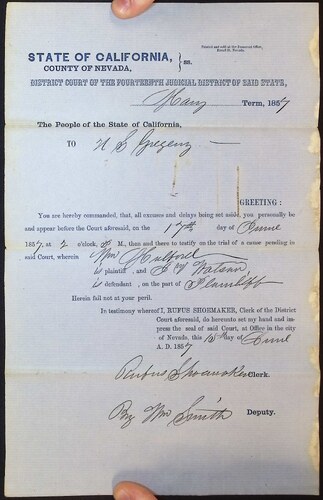 Printed and sold at the Democrat Office,
STATE OF CALIFORNIA, } ss.
COUNTY OF NEVADA,
DISTRICT COURT OF THE FOURTEENTH JUDICIAL DISTRICT OF SAID STATE,
Term, 1857
The People of the State of California,
TO N L Gregory
GREETING:
You are hereby commanded, that, all excuses and delays being set aside, you personally be
and appear before the Court aforesaid, on the 17th day of June
1857, at 2 o'clock, P M., then and there to testify on the trial of a cause pending in
said Court, wherein Wm Hulford
is plaintiff, and Watson
is defendant, on the part of Plaintiff
Herein fail not at your peril.
In testimony whereof I, RUFUS SHOEMAKER, Clerk of the District
Court aforesaid, do hereunto set my hand and im-
press the seal of said Court, at Office in the city
of Nevada, this day of June
A. D. 1857
Rufus Shoemaker Clerk.
By Wm Smith Deputy.